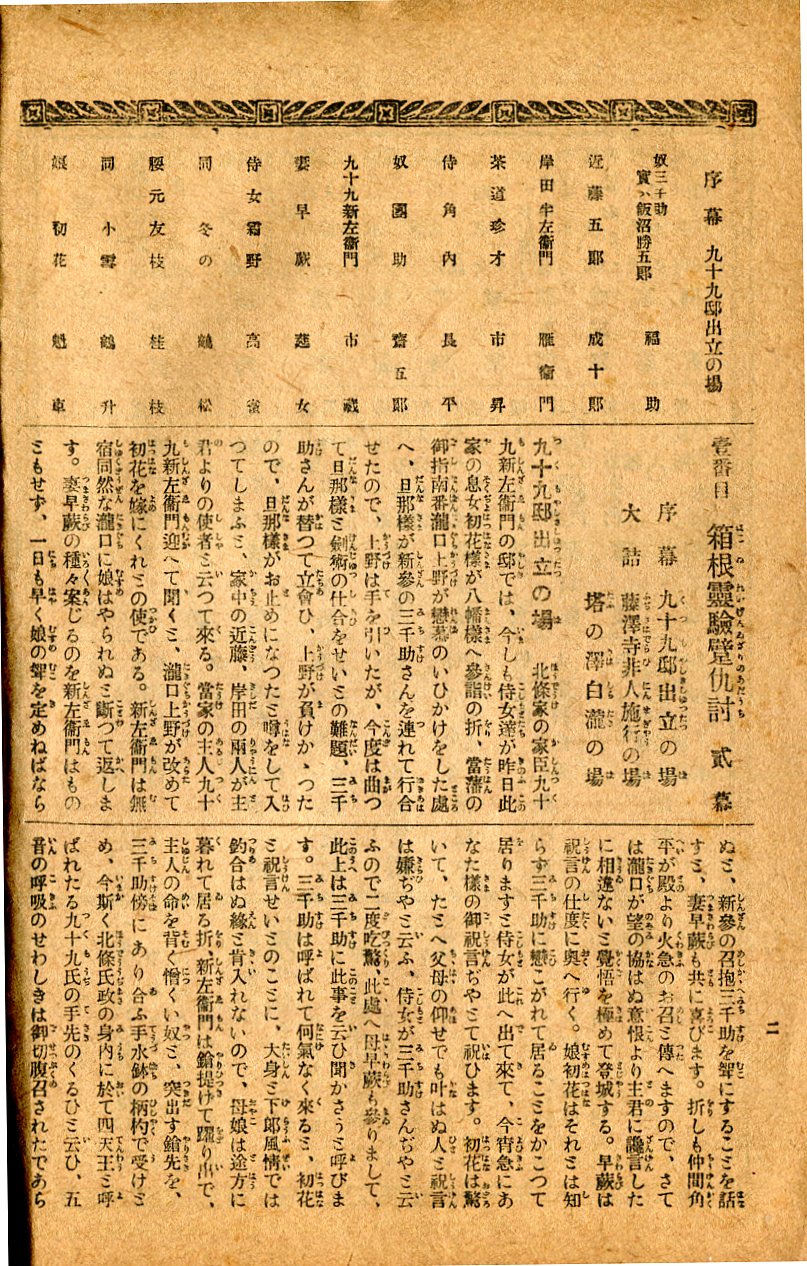 序幕 九十九邸出立の場
奴三千助
實ハ飯沼勝五郎 福助
近藤五郎 成十郎
岸田半左衞門 雁衞門
茶道珍才 市昇
侍角內 長平
奴國助 齋五郎
九十九新左衞門 市藏
妻早蕨 蓮女
侍女霜野 高雀
同冬の 鶴松
腰元友枝 桂枝
同小雪 鶴升
娘初花 魁車
壹番目 箱根靈驗躄仇討 貳幕
序幕 九十九邸出立の場
大詰 藤澤寺非人施行の場
塔の澤白瀧の場
九十九邸出立の場 北條家の家臣九十
九新左衞門の邸では、今しも侍女達が昨日此
家の息女初花樣が八幡樣へ參詣の折、當藩の
御指南番瀧口上野が戀慕のいひかけをした處
へ、旦那樣が新參の三千助さんを連れて行合
せたので、上野は手を引いたが、今度は曲つ
て旦那樣ミ劍術の仕合をせいミの難題、三千
助さんが替つて立會ひ、上野が負けかゝつた
ので、旦那樣がお止めになつたミ噂をして入
つてしまふミ、家中の近藤、岸田の兩人が主
君よりの使者ミ云つて來る。當家の主人九十
九新左衞門迎へて聞くミ、瀧口上野が改めて
初花を嫁にくれミの使である。新左衞門は無
宿同然な瀧口に娘はやられぬミ斷つて返しま
す。妻早蕨の種々案じるのを新左衞門はもの
ミもせず、一日も早く娘の聟を定めねばなら
ぬミ、新參の召抱三千助を聟にするこミを話
すミ、妻早蕨も共に喜びます。折しも仲間角
平が殿より火急のお召ミ傳へますので、さて
は瀧口が望の協はぬ意恨より主君に讒言した
に相違ないミ覺悟を極めて登城する。早蕨は
祝言の仕度に奧へ行く。娘初花はそれミは知
らず三千助に戀こがれて居るこミをかこつて
居りますミ侍女が此へ出て來て、今宵急にあ
なた樣の御祝言ぢやミて祝ひます。初花は驚
いて、たミへ父母の仰せでも叶はぬ人ミ祝言
は嫌ぢやミ云ふ、侍女が三千助さんぢやミ云
ふので二度吃驚、此處へ母早蕨も參りまして、
此上は三千助に此事を云ひ聞かさうミ呼びま
す。三千助は呼ばれて何氣なく來るミ、初花
ミ祝言せいミのこミに、大身ミ下郎風情では
釣合はぬ緣ミ肯入れないので、母娘は途方に
暮れて居る折、新左衞門は鎗提げて躍り出で、
主人の命を背く憎くい奴ミ、突出す鎗先を、
三千助傍にあり合ふ手水鉢の柄杓で受けミ
め、今斯く北條氏政の身內に於て四天王ミ呼
ばれたる九十九氏の手先のくるひミ云ひ、五
音の呼吸のせわしきは御切腹召されたであら
二